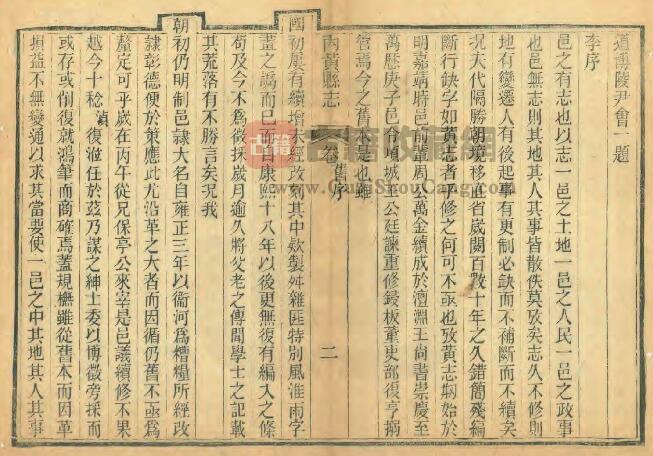 道博陵尹會一題
李序
邑之有志也以志一邑之土地一邑之人民一邑之政事
也邑無志則其地其人其事皆散佚莫攷矣志久不修則
地有變遷人有後起事有更制必缺而不補斷而不續矣
况大代隔勝朝境移直省歲閱百數十年之久錯簡殘編
斷行缺字如舊志者乎修之何可不亟也攷黃志剏始於
明嘉靖時邑前輩周公萬金續成於澶淵王尚書崇慶至
萬歷庚子邑令項城公廷諫重修鋟板董吏部復亨搦
管焉今之舊本是也雖
內黃縣志 卷 舊序 二
國初屢有續增未經改刻其中欵製舛雜匪特別風淮雨字
畫之譌而已而自康熙十八年以後更無復有編入之條
茍及今不為徵採歲月逾久將父老之傳聞學士之記載
其荒落有不勝言矣况我
朝初仍明制邑隷大名自雍正三年以衞河為糟糧所經改
隷彰德便於策應此尤沿革之大者而因循仍舊不亟為
釐定可乎歲在丙午從兄保亭公來宰是邑議續修不果
越今十稔禎復涖任於茲乃謀之紳士委以博徵旁採而
或存或倒復就鴻筆而商確焉蓋規橅雖從舊本而因革
損益不無變通以求其當要使一邑之中其地其人其事
古籍收藏网
www.GuJiShouCang.com